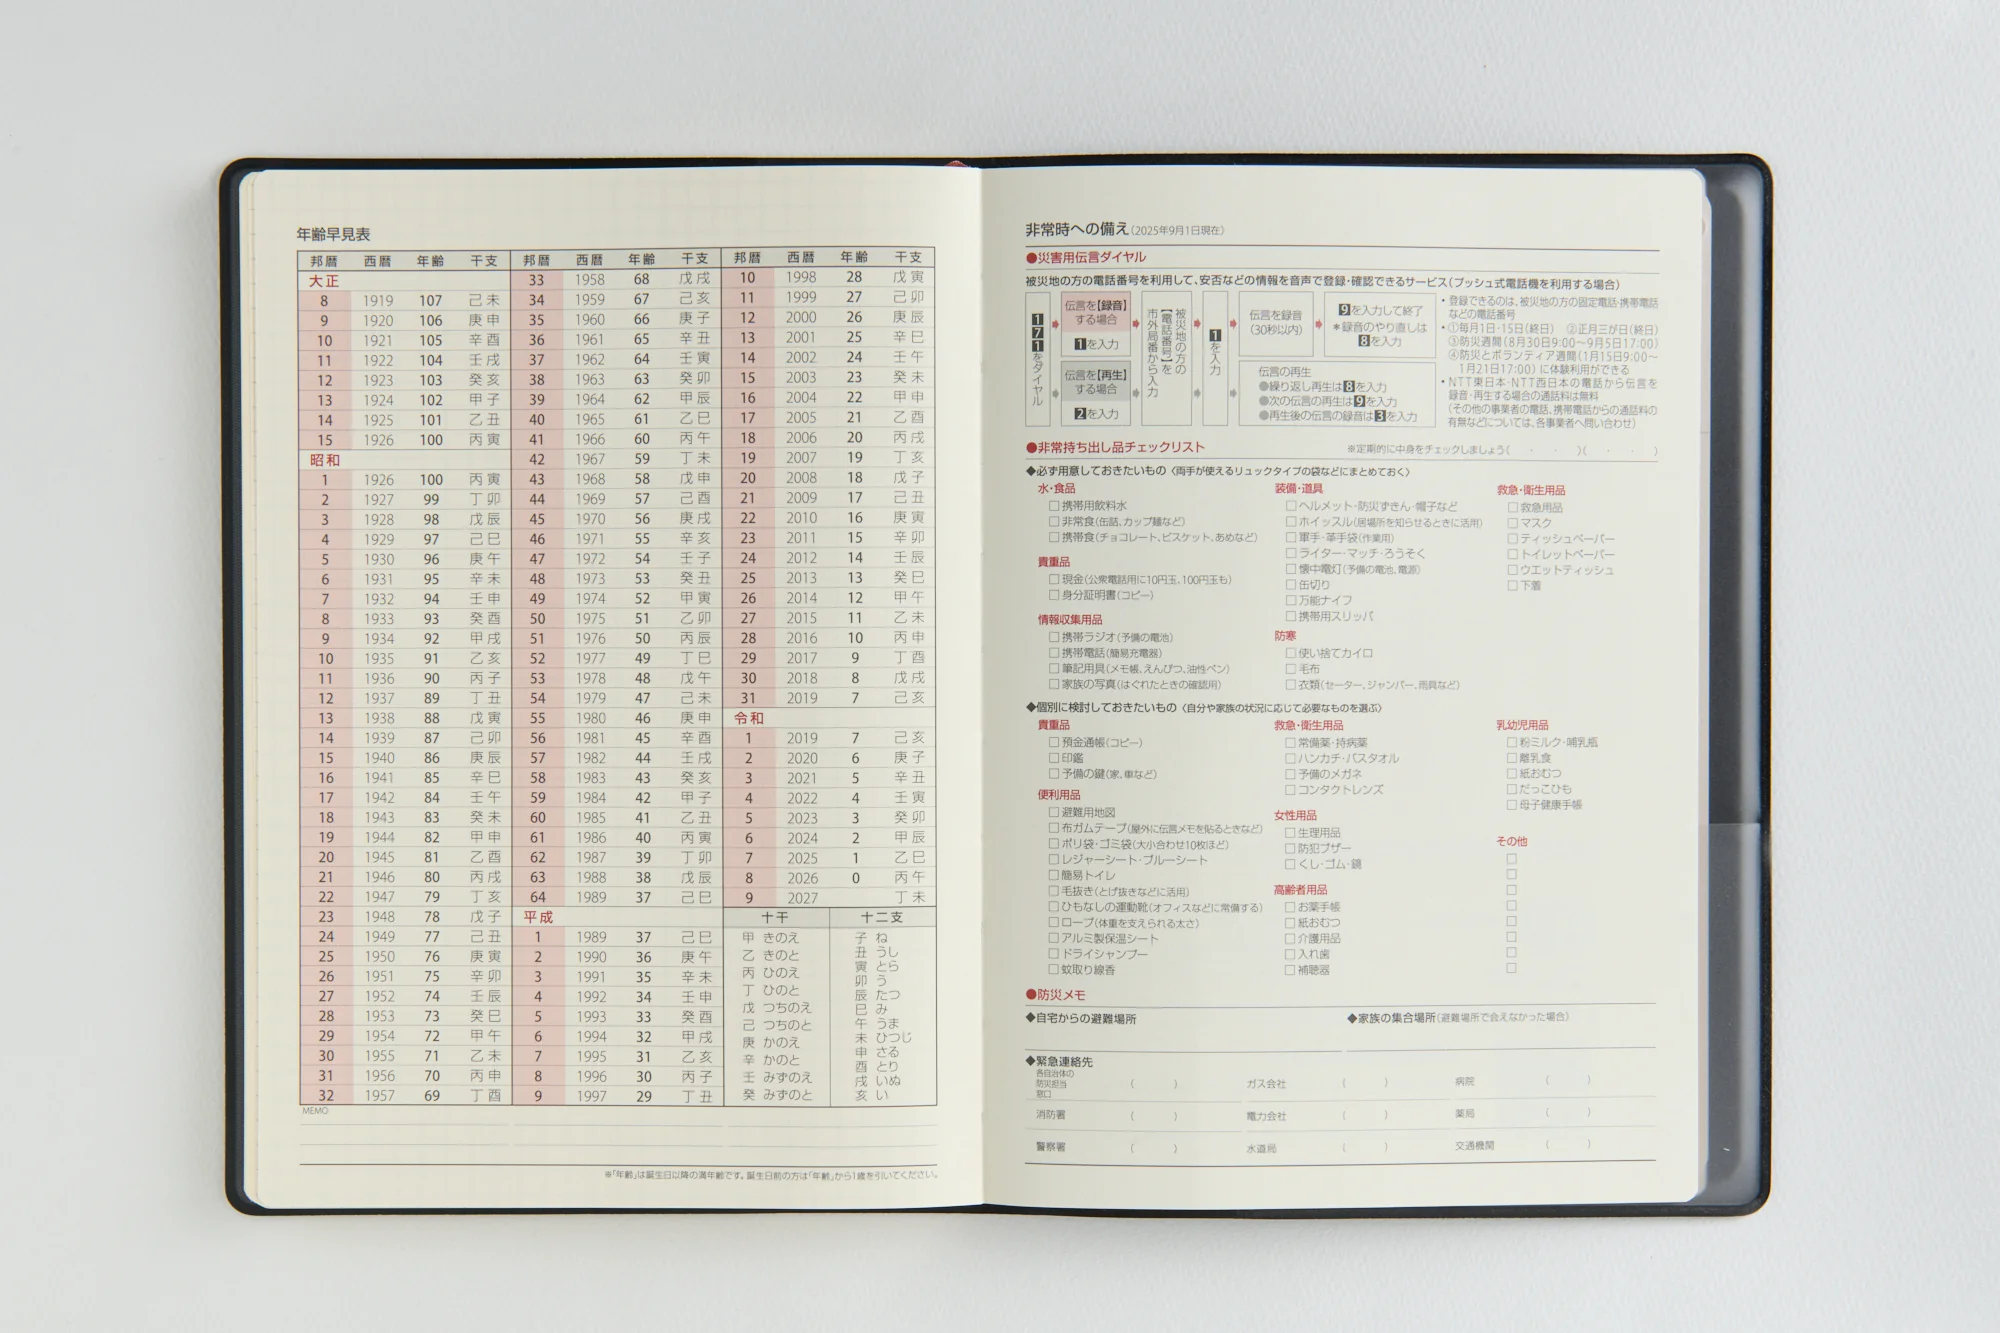 年齢早見表
邦暦 西暦 年齢 干支
大正
8 1919 107 己未
9 1920 106 庚申
10 1921 105 辛酉
11 1922 104 壬戌
12 1923 103 癸亥
13 1924 102 甲子
14 1925 101 乙丑
15 1926 100 丙寅
昭和
1 1926 100 丙寅
2 1927 99 丁卯
3 1928 98 戊辰
4 1929 97 己巳
5 1930 96 庚午
6 1931 95 辛未
7 1932 94 壬申
8 1933 93 癸酉
9 1934 92 甲戌
10 1935 91 乙亥
11 1936 90 丙子
12 1937 89 丁丑
13 1938 88 戊寅
14 1939 87 己卯
15 1940 86 庚辰
16 1941 85 辛巳
17 1942 84 壬午
18 1943 83 癸未
19 1944 82 甲申
20 1945 81 乙酉
21 1946 80 丙戌
22 1947 79 丁亥
23 1948 78 戊子
24 1949 77 己丑
25 1950 76 庚寅
26 1951 75 辛卯
27 1952 74 壬辰
28 1953 73 癸巳
29 1954 72 甲午
30 1955 71 乙未
31 1956 70 丙申
32 1957 69 丁酉
邦暦 西暦 年齢 干支
33 1958 68 戊戌
34 1959 67 己亥
35 1960 66 庚子
36 1961 65 辛丑
37 1962 64 壬寅
38 1963 63 癸卯
39 1964 62 甲辰
40 1965 61 乙巳
41 1966 60 丙午
42 1967 59 丁未
43 1968 58 戊申
44 1969 57 己酉
45 1970 56 庚戌
46 1971 55 辛亥
47 1972 54 壬子
48 1973 53 癸丑
49 1974 52 甲寅
50 1975 51 乙卯
51 1976 50 丙辰
52 1977 49 丁巳
53 1978 48 戊午
54 1979 47 己未
55 1980 46 庚申
56 1981 45 辛酉
57 1982 44 壬戌
58 1983 43 癸亥
59 1984 42 甲子
60 1985 41 乙丑
61 1986 40 丙寅
62 1987 39 丁卯
63 1988 38 戊辰
64 1989 37 己巳
平成
1 1989 37 己巳
2 1990 36 庚午
3 1991 35 辛未
4 1992 34 壬申
5 1993 33 癸酉
6 1994 32 甲戌
7 1995 31 乙亥
8 1996 30 丙子
9 1997 29 丁丑
邦暦 西暦 年齢 干支
10 1998 28 戊寅
11 1999 27 己卯
12 2000 26 庚辰
13 2001 25 辛巳
14 2002 24 壬午
15 2003 23 癸未
16 2004 22 甲申
17 2005 21 乙酉
18 2006 20 丙戌
19 2007 19 丁亥
20 2008 18 戊子
21 2009 17 己丑
22 2010 16 庚寅
23 2011 15 辛卯
24 2012 14 壬辰
25 2013 13 癸巳
26 2014 12 甲午
27 2015 11 乙未
28 2016 10 丙申
29 2017 9 丁酉
30 2018 8 戊戌
31 2019 7 己亥
令和
1 2019 7 己亥
2 2020 6 庚子
3 2021 5 辛丑
4 2022 4 壬寅
5 2023 3 癸卯
6 2024 2 甲辰
7 2025 1 乙巳
8 2026 0 丙午
9 2027 丁未
十干
甲 きのえ
乙 きのと
丙 ひのえ
丁 ひのと
戊 つちのえ
己 つちのと
庚 かのえ
辛 かのと
壬 みずのえ
癸 みずのと
十二支
子 ね
丑 うし
寅 とら
卯 う
辰 たつ
巳 み
午 うま
未 ひつじ
申 さる
酉 とり
戌 いぬ
亥 い
MEMO
※「年齢」は誕生日以降の満年齢です。誕生日前の方は「年齢」から1歳を引いてください。
非常時への備え(2025年9月1日現在)
●災害用伝言ダイヤル
被災地の方の電話番号を利用して、安否などの情報を音声で登録・確認できるサービス(プッシュ式電話機を利用する場合)
171をダイヤル
伝言を【録音】
する場合
1を入力
伝言を【再生】
する場合
2を入力
被災地の方の
【電話番号】を
市外局番から入力
1を入力
伝言を録音
(30秒以内)
9を入力して終了
＊録音のやり直しは
8を入力
伝言の再生
●繰り返し再生は8を入力
●次の伝言の再生は9を入力
●再生後の伝言の録音は3を入力
・登録できるのは、被災地の方の固定電話・携帯電話
などの電話番号
・①毎月1日・15日(終日) ②正月三が日(終日)
③防災週間(8月30日9:00〜9月5日17:00)
④防災とボランティア週間(1月15日9:00〜
1月21日17:00)に体験利用ができる
・NTT東日本・NTT西日本の電話から伝言を
録音・再生する場合の通話料は無料
(その他の事業者の電話、携帯電話からの通話料の
有無などについては、各事業者へ問い合わせ)
●非常持ち出し品チェックリスト
※定期的に中身をチェックしましょう( ・ ・ )( ・ ・ )
◆必ず用意しておきたいもの〈両手が使えるリュックタイプの袋などにまとめておく〉
水・食品
□携帯用飲料水
□非常食(缶詰、カップ麺など)
□携帯食(チョコレート、ビスケット、あめなど)
貴重品
□現金(公衆電話用に10円玉、100円玉も)
□身分証明書(コピー)
情報収集用品
□携帯ラジオ(予備の電池)
□携帯電話(簡易充電器)
□筆記用具(メモ帳、えんぴつ、油性ペン)
□家族の写真(はぐれたときの確認用)
装備・道具
□ヘルメット・防災ずきん・帽子など
□ホイッスル(居場所を知らせるときに活用)
□軍手・革手袋(作業用)
□ライター・マッチ・ろうそく
□懐中電灯(予備の電池、電源)
□缶切り
□万能ナイフ
□携帯用スリッパ
防寒
□使い捨てカイロ
□毛布
□衣類(セーター、ジャンパー、雨具など)
救急・衛生用品
□救急用品
□マスク
□ティッシュペーパー
□トイレットペーパー
□ウエットティッシュ
□下着
◆個別に検討しておきたいもの〈自分や家族の状況に応じて必要なものを選ぶ〉
貴重品
□預金通帳(コピー)
□印鑑
□予備の鍵(家、車など)
便利用品
□避難用地図
□布ガムテープ(屋外に伝言メモを貼るときなど)
□ポリ袋・ゴミ袋(大小合わせ10枚ほど)
□レジャーシート・ブルーシート
□簡易トイレ
□毛抜き(とげ抜きなどに活用)
□ひもなしの運動靴(オフィスなどに常備する)
□ロープ(体重を支えられる太さ)
□アルミ製保温シート
□ドライシャンプー
□蚊取り線香
救急・衛生用品
□常備薬・持病薬
□ハンカチ・バスタオル
□予備のメガネ
□コンタクトレンズ
女性用品
□生理用品
□防犯ブザー
□くし・ゴム・鏡
高齢者用品
□お薬手帳
□紙おむつ
□介護用品
□入れ歯
□補聴器
乳幼児用品
□粉ミルク・哺乳瓶
□離乳食
□紙おむつ
□だっこひも
□母子健康手帳
その他
□
□
□
□
□
□
□
□
●防災メモ
◆自宅からの避難場所
◆家族の集合場所(避難場所で会えなかった場合)
◆緊急連絡先
各自治体の
防災担当
窓口
( ) ガス会社 ( ) 病院 ( )
消防署 ( ) 電力会社 ( ) 薬局 ( )
警察署 ( ) 水道局 ( ) 交通機関 ( )